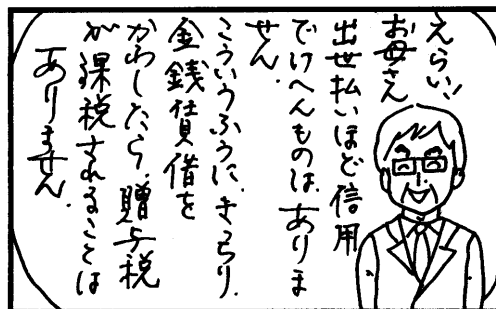 えらい!!
お母さん
出世払いほど信用
でけへんものは、ありま
せん.
こういうふうに、きっちり.
金銭貸借を
かわしたら、贈与税
が課税されることは
ありません.